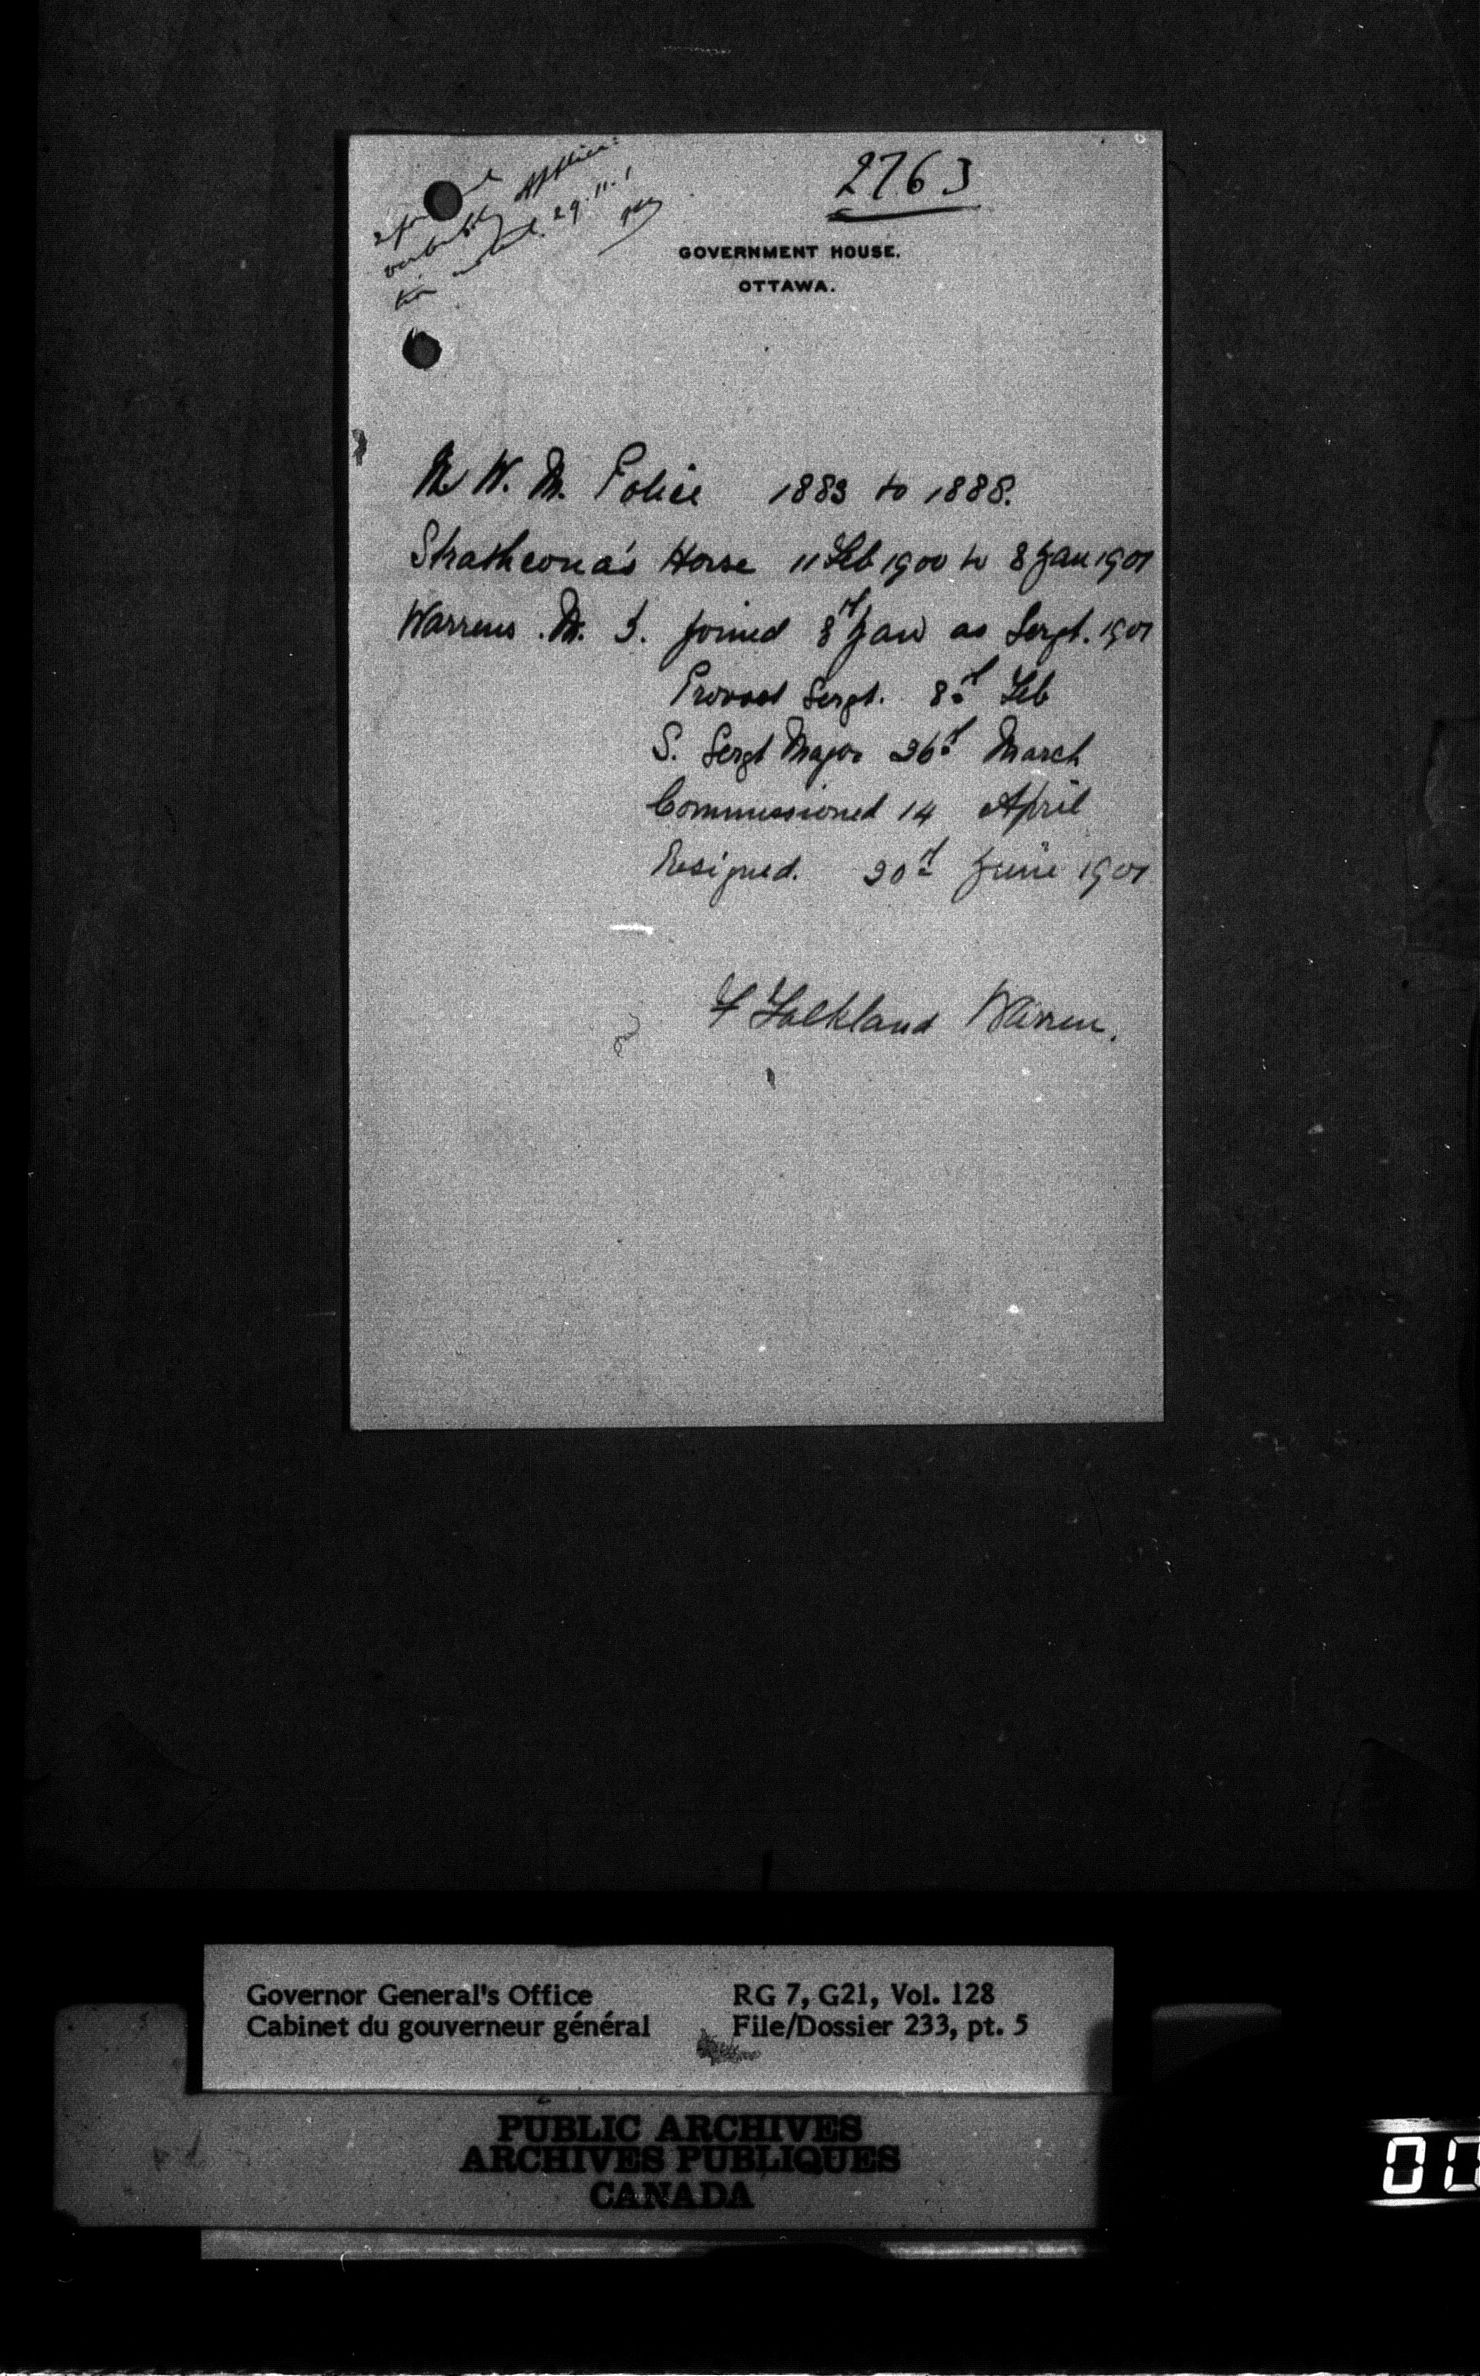 2763
29.11.1
GOVERNMENT HOUSE.
OTTAWA.
N. W. M. Police 1883 to 1888.
Strathcona's Horse 11 Feb 1900 to 8 Jan 1901
Warrens M. I. joined 8th Jan as Sergt. 1901
Provost Sergt. 8th Feb
S. Sergt Major 26th March
Commissioned 14 April
Resigned. 30th June 1901
F Falkland Warren.
Governor General's Office RG 7, G21, Vol. 128
Cabinet du gouverneur général File/Dossier 233, pt. 5
PUBLIC ARCHIVES
ARCHIVES PUBLIQUES
CANADA